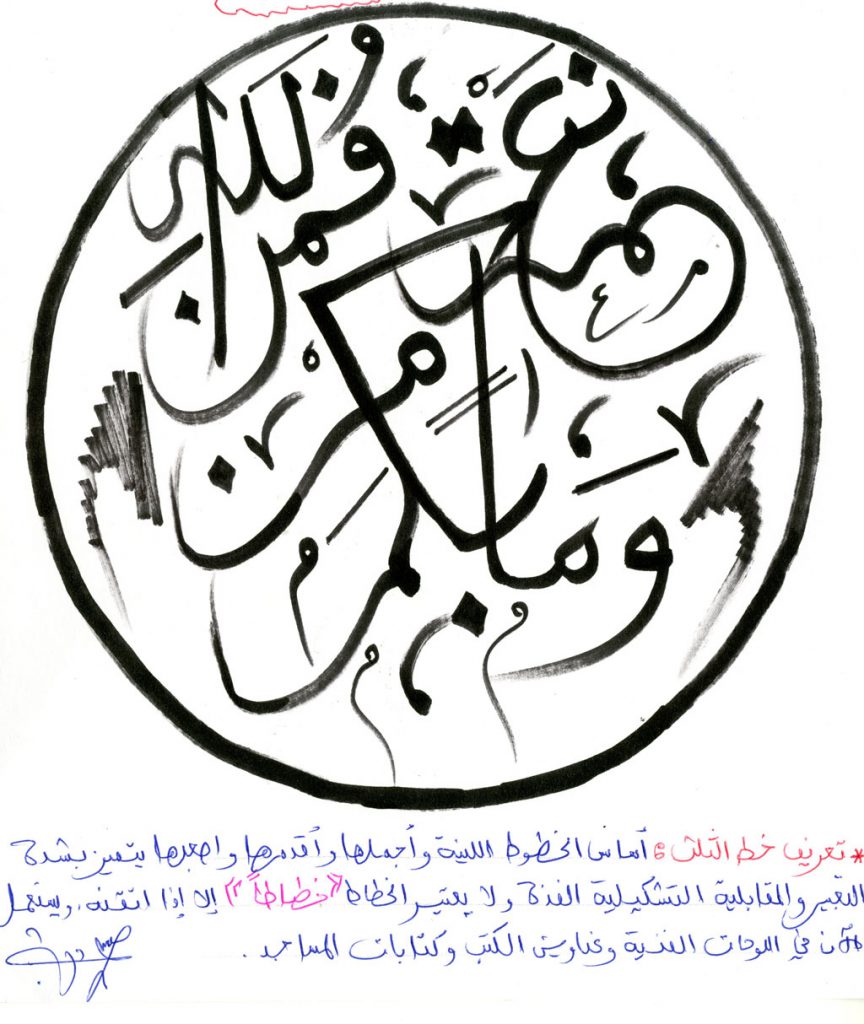 وما بكم من نعمة فمن الله
* تعريف خط الثلث: أساس الخطوط اللينة وأجملها وأقدمها وأصعبها يتميز بشدة
التعبير والمقابلية التشكيلية الفذة ولا يعتبر الخطاط "خطاطاً" إلا إذا اتقنه، ويستعمل
الآن في اللوحات الفنية وعناوين الكتب وكتابات المساجد.